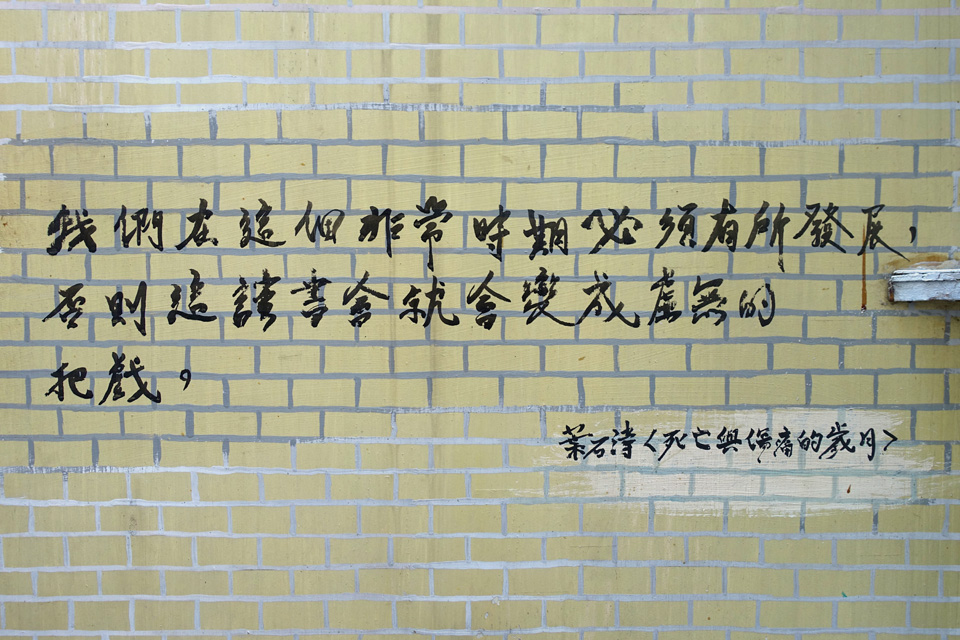 我們在這個非常時期必須有所發展，
否則這讀書會就會變成虛無的
把戲。
葉石濤〈死亡與傷痛的歲月〉